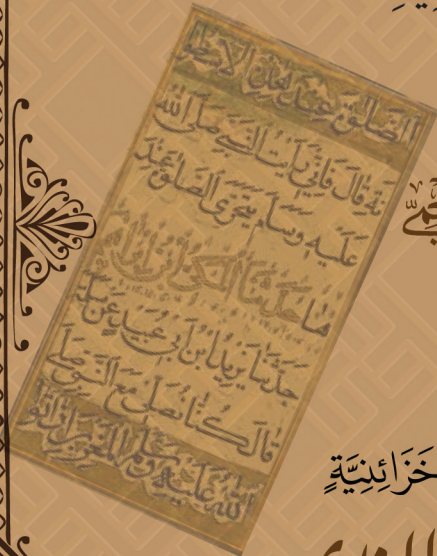 الصلاة عند هذه الاسطو
نة قال فاني رأيت النبي صلى الله
عليه وسلم يتحرى الصلاة عند
ها حدثنا المكي بن ابراهيم
حدثنا يزيد بن ابي عبيد عن سلمة
قال كنا نصلي مع النبي صلى
الله عليه وسلم المغرب اذا توا
خَزَائِنِيَّةٍ